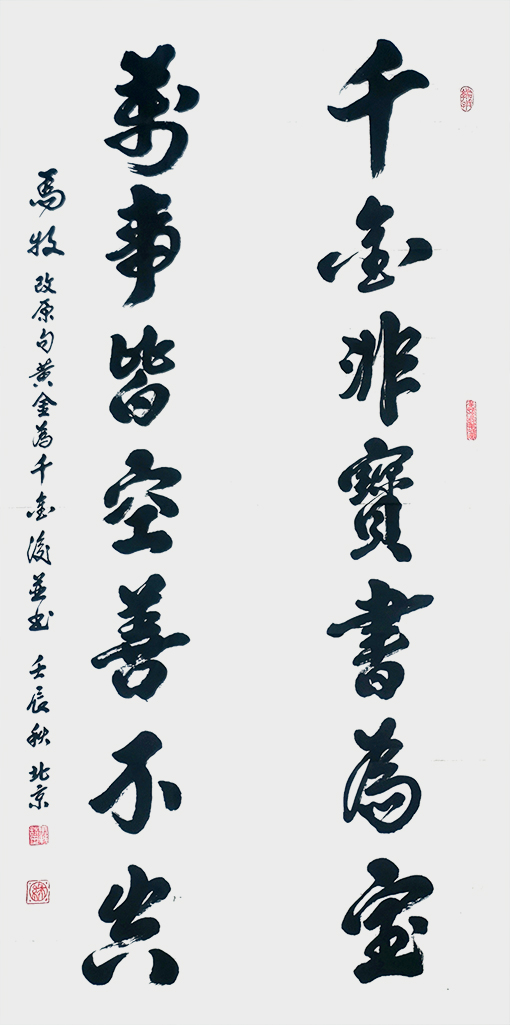 千金非寶書為宝
萬事皆空善不空
馬牧改原句黄金為千金後並书 壬辰秋北京